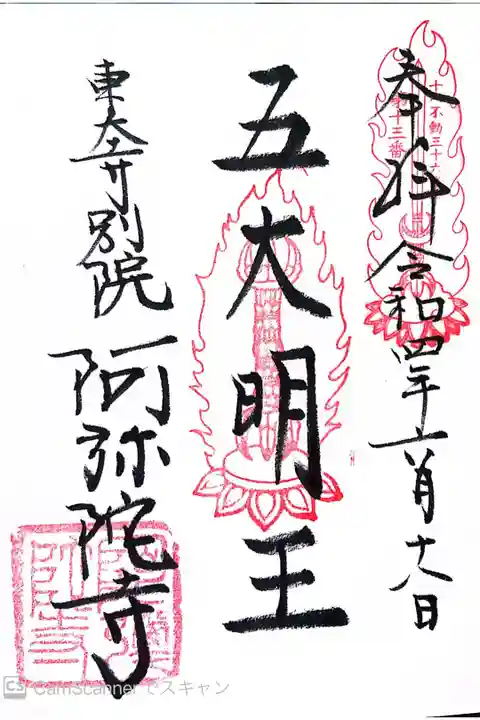 奉拝 令和四年六月十八日
十八不動三十六
第十三番
五大明王
東大寺別院 阿弥陀寺
CS CamScanner でスキャン